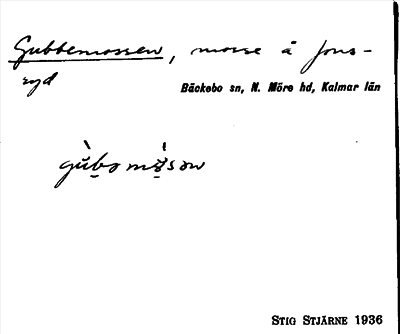 Gubbemossen, mosse å Jons-
ryd
Bäckebo sn, N. Möre hd, Kalmar län
STIG STJÄRNE 1936